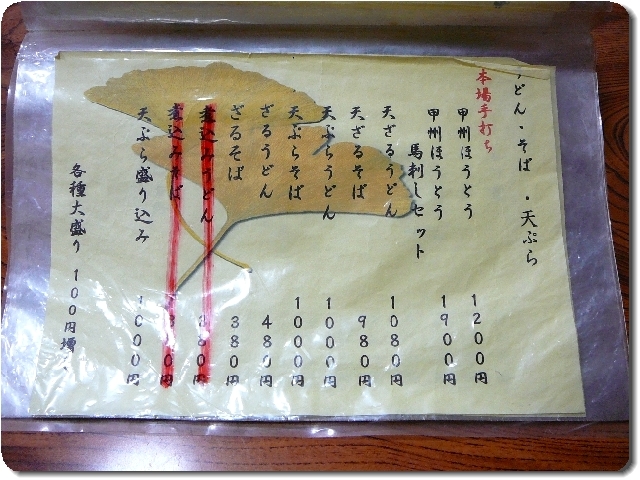 どん・そば ・天ぷら
本場手打ち
甲州ほうとう 1200円
甲州ほうとう 1900円
馬刺しセット
天ざるうどん 1080円
天ざるそば 980円
天ぷらうどん 1000円
天ぷらそば 1000円
ざるうどん 480円
ざるそば 380円
煮込みうどん
煮込みそば
天ぷら盛り込み 1000円
各種大盛り 100円増、